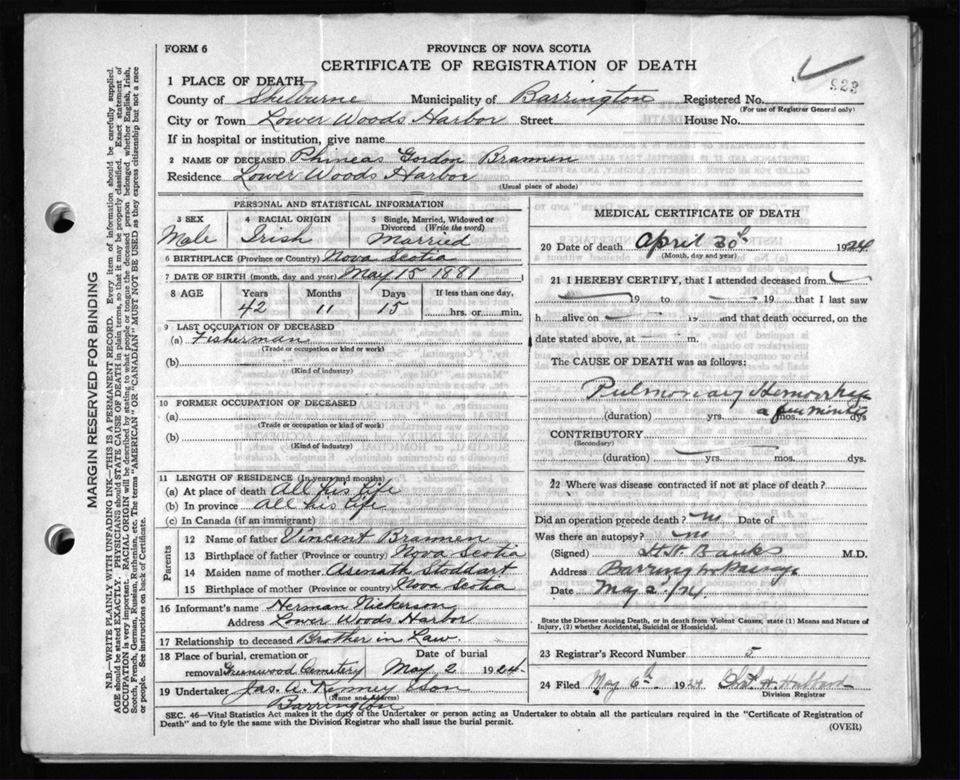 FORM 6
PROVINCE OF NOVA SCOTIA
CERTIFICATE OF REGISTRATION OF DEATH
923
1 PLACE OF DEATH—
County of Shelburne Municipality of Barrington Registered No.
(For use of Registrar General only)
City or Town Lower Woods Harbor Street House No.
If in hospital or institution, give name
2 NAME OF DECEASED Phineas Gordon Brannen
Residence Lower Woods Harbor
(Usual place of abode)
PERSONAL AND STATISTICAL INFORMATION
3 SEX 4 RACIAL ORIGIN 5 Single, Married, Widowed or Divorced (Write the word)
Male Irish Married
6 BIRTHPLACE (Province or Country) Nova Scotia
7 DATE OF BIRTH (month, day and year) May 15 1881
8 AGE Years Months Days If less than one day,
42 11 15 hrs. or min.
9 LAST OCCUPATION OF DECEASED
(a) Fisherman
(Trade or occupation or kind or work)
(b)
(Kind of industry)
10 FORMER OCCUPATION OF DECEASED
(a)
(Trade or occupation or kind or work)
(b)
(Kind of industry)
11 LENGTH OF RESIDENCE (In years and months)
(a) At place of death All his life
(b) In province All his life
(c) In Canada (if an immigrant)
Parents
12 Name of father Vincent Brannen
13 Birthplace of father (Province or country) Nova Scotia
14 Maiden name of mother Asenath Stoddart
15 Birthplace of mother (Province or country) Nova Scotia
16 Informant's name Herman Nickerson
Address Lower Woods Harbor
17 Relationship to deceased Brother in Law.
18 Place of burial, cremation or removal Greenwood Cemetery Date of burial May 2 1924.
19 Undertaker Jas. A. Kenney & Son
(Name and address)
Barrington
MEDICAL CERTIFICATE OF DEATH
20 Date of death April 30th 1924
(Month, day and year)
21 I HEREBY CERTIFY, that I attended deceased from
19 to 19 that I last saw
h alive on 19 and that death occurred, on the
date stated above, at m.
The CAUSE OF DEATH was as follows:
Pulmonary Hemorrhage
a few minutes
(duration) yrs. mos. dys
CONTRIBUTORY
(Secondary)
(duration) yrs. mos. dys.
22 Where was disease contracted if not at place of death?
Did an operation precede death? no Date of
Was there an autopsy? no
(Signed) Banks M.D.
Address Barrington Passage
Date May 2/24
State the Disease causing Death, or in death from Violent Causes, state (1) Means and Nature of Injury, (2) whether Accidental, Suicidal or Homicidal.
23 Registrar's Record Number 5
24 Filed May 6th 1924 H. Hubbard
Division Registrar
SEC. 46—Vital Statistics Act makes it the duty of the Undertaker or person acting as Undertaker to obtain all the particulars required in the "Certificate of Registration of
Death" and to fyle the same with the Division Registrar who shall issue the burial permit.
(OVER)
MARGIN RESERVED FOR BINDING
N.B.—WRITE PLAINLY WITH UNFADING INK—THIS IS A PERMANENT RECORD. Every item of information should be carefully supplied.
AGE should be stated EXACTLY. PHYSICIANS should STATE CAUSE OF DEATH in plain terms, so that it may be properly classified. Exact statement of
OCCUPATION is very important. RACIAL ORIGIN will be described by stating to what people or tongue the deceased person belonged whether English, Irish,
Scotch, French, German, Russian, Ruthenian, etc. The terms "AMERICAN" OR "CANADIAN" MUST NOT BE USED as they express citizenship but not a race
or people. See instructions on back of Certificate.